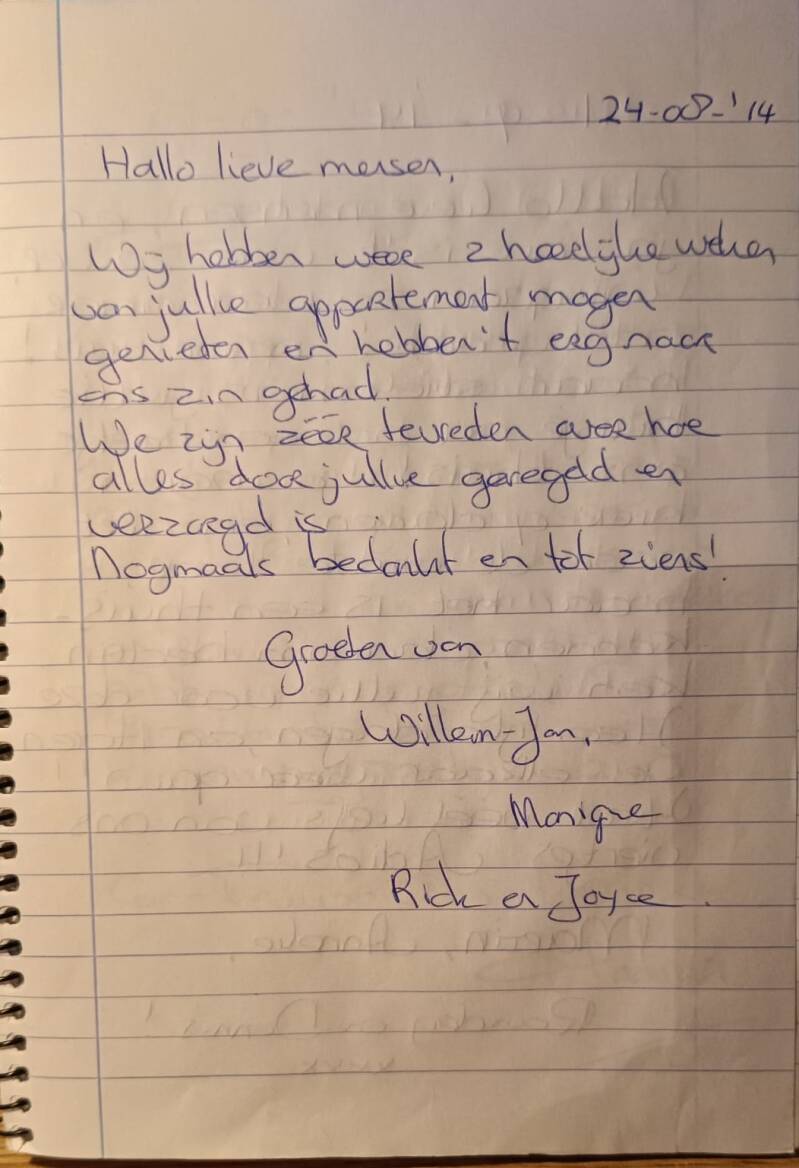 24-08-'14
Hallo lieve mensen,
Wij hebben weer 2 heerlijke weken
van jullie appartement mogen
genieten en hebben 't erg naar
ons zin gehad.
We zijn zéér tevreden over hoe
alles door jullie geregeld en
verzorgd is.
Nogmaals bedankt en tot ziens!
Groeten van
Willem-Jan,
Monique
Rick en Joyce.